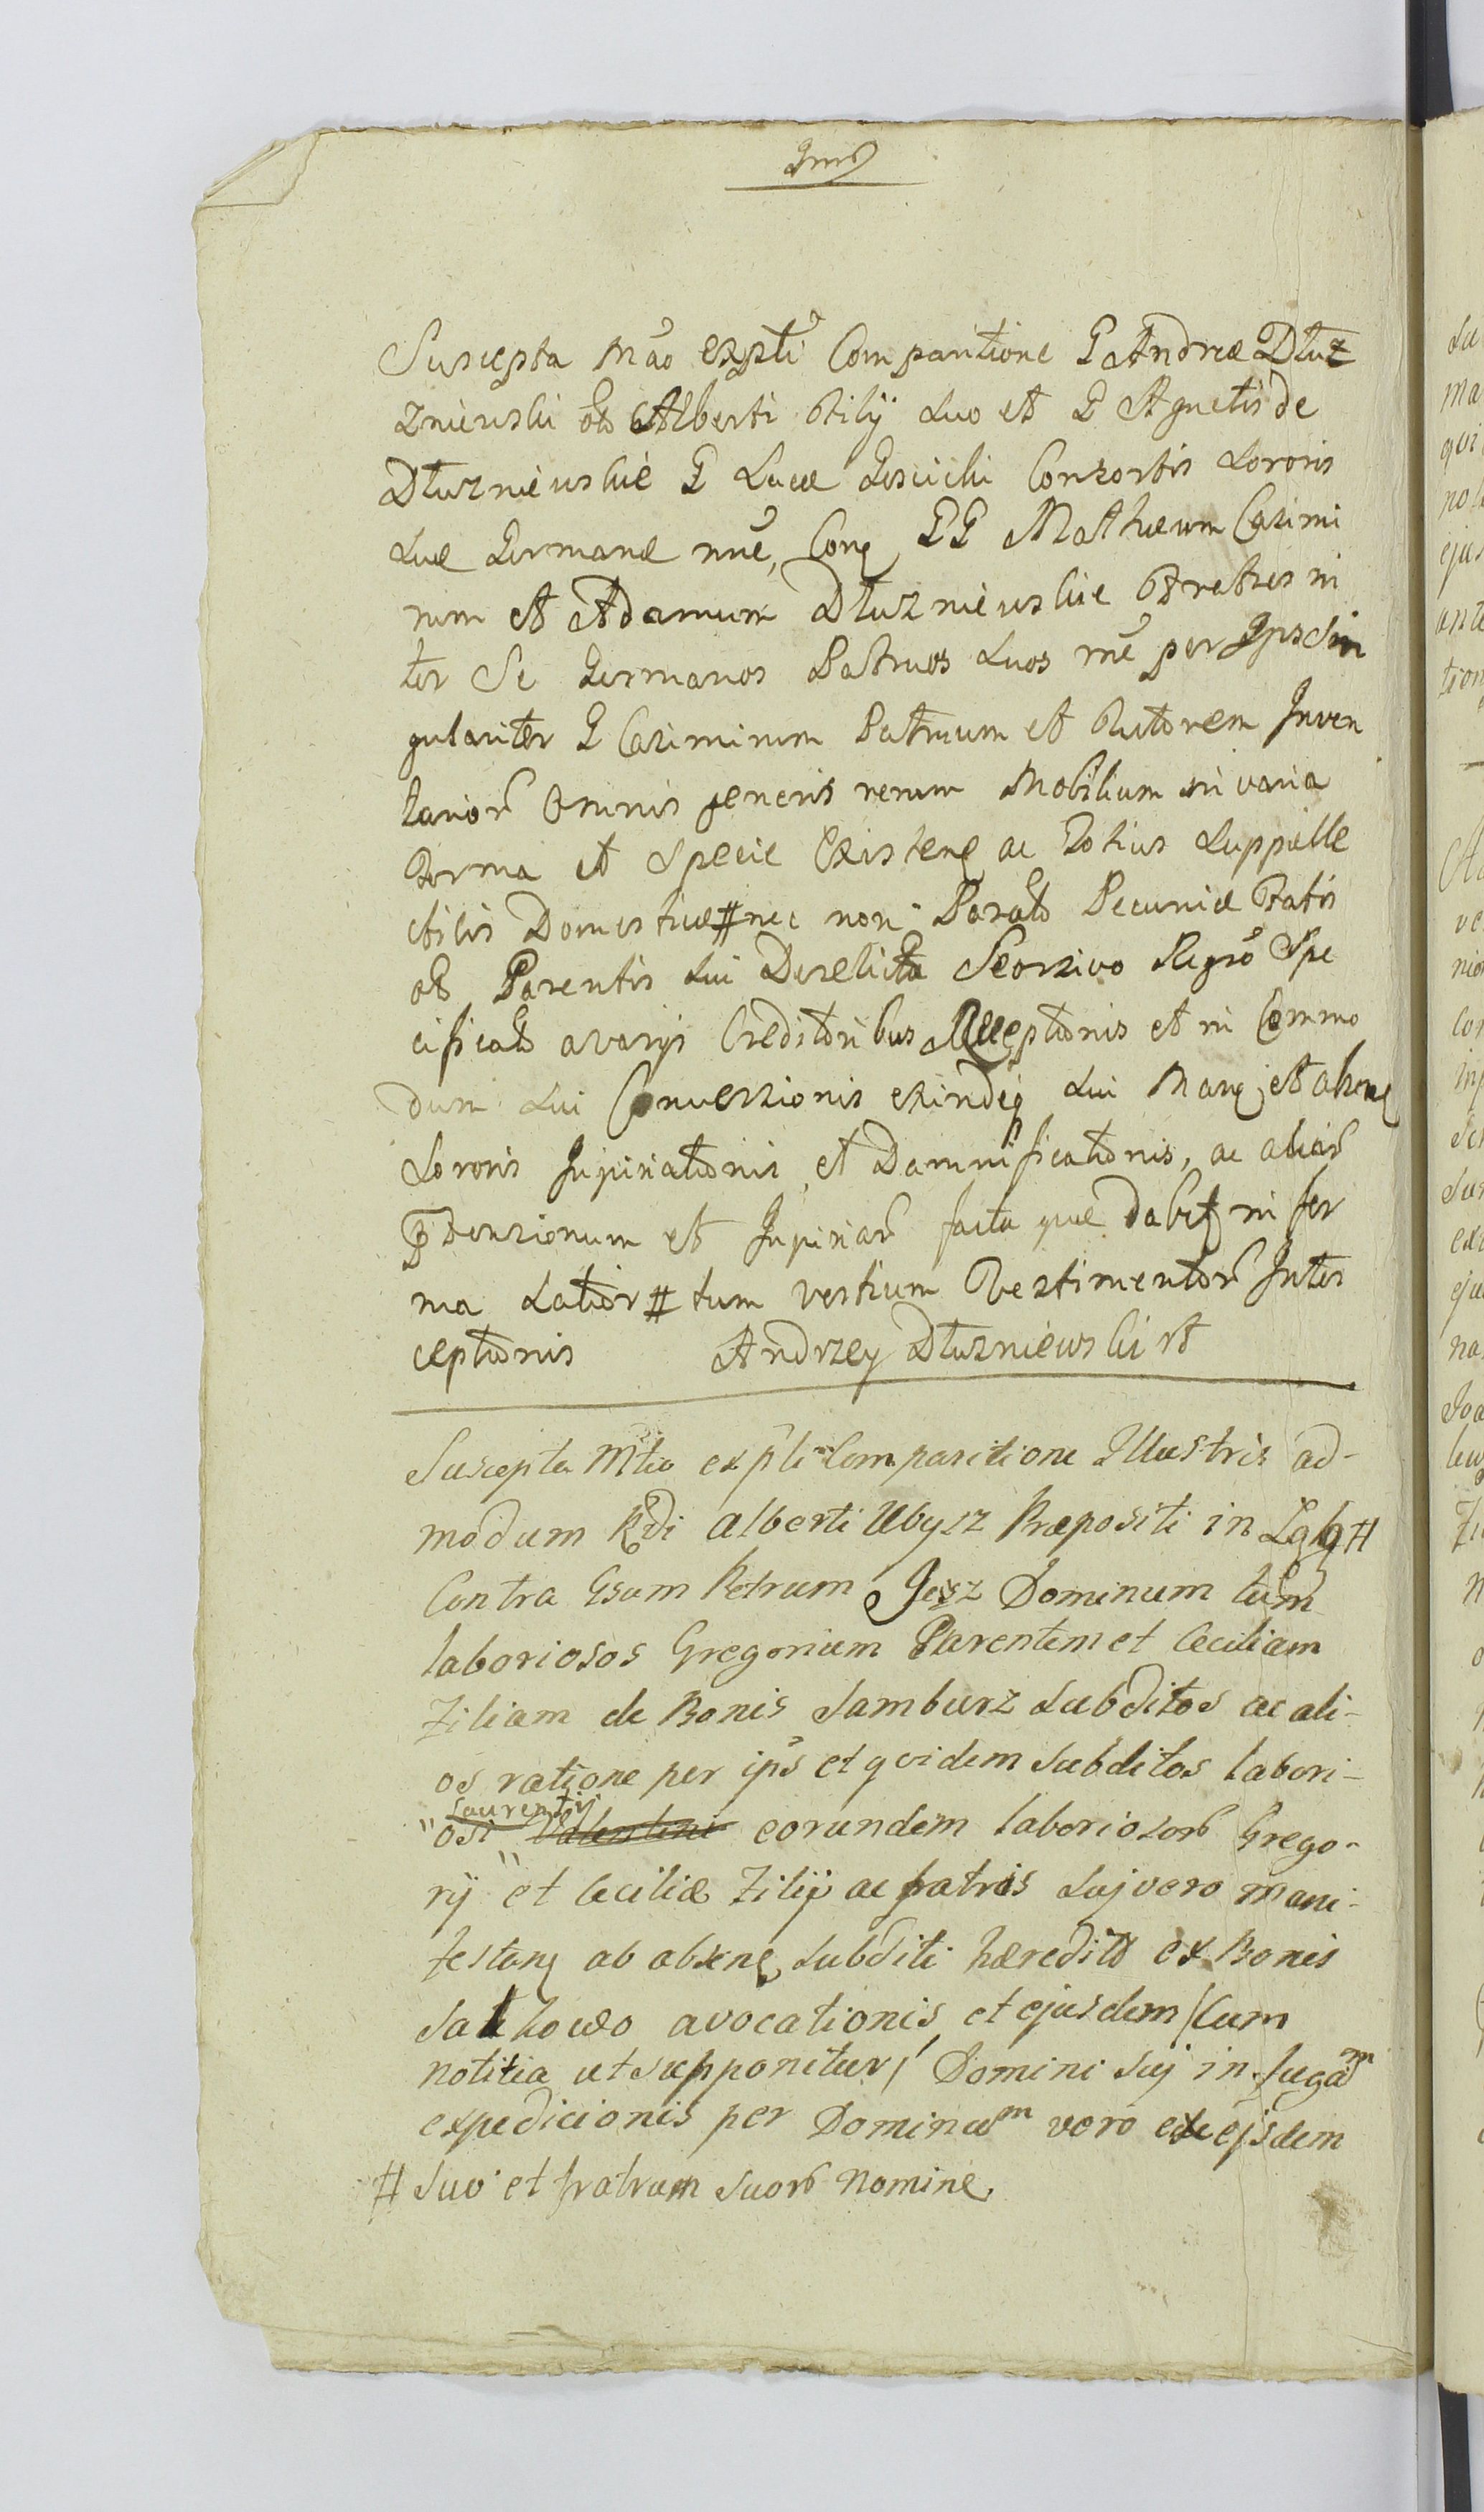 Suscepta Mão expti Comparitione G Andreæ Dłuz
znieuski olo Alberti Filij suo et G Agnetis de
Dłuznieuskie G Lucæ Consortis Sororis
suæ Germanæ nne, Conq GG Mathæum Casimi
rum et Adamum Dłuznieuskie Fratres in
ter Se Germanos Patruos suos rne per Ipsos Sin
gulariter G Casimirum Patruum et Tutorem Inven
tarior Omnis generis rerum Mobilium in varia
Forma et Specie Existenq ac Totius Suppelle
ctilis Domesticæ # nec non Parato Pecuniæ Fatis
olo Parentis sui Derelicta Seorsivo Regro Spe
cificato a varijs Creditoribus Receptionis et in Commo
dum sui Conversionis exindeq sui Manq et absenq
Sororis Injuriationis, et Damnificationis, ac aliar
Prætensionum et Injuriar facta quæ dabit in ter
mo Latior # tum vestium Vestimentor Inter
ceptionis Andrzey Dłuznieuski
Suscepta Mtio expti Comparitione Illustris ad-
modum Rdi Alberti Ubysz Præpositi in #
Contra Gsum Petrum Jesz Dominum tum
laboriosos Gregorium Parentem et Ceciliam
Filiam de Bonis Samburz Subditos ac ali-
os ratione per ips et quidem Subditos labori-
Laurentij
"osi Valentini eorundem laboriosor Grego-
rij" et Ceciliæ Filij ac fratris suj vero mani-
festanq ab absenq subditi hæredito ex Bonis
avocationis et ejusdem /Cum
notitia ut supponitur/ Domini suj in fugam
expedicionis per Dominum vero ejsdem
# suo et fratrum suor nomine